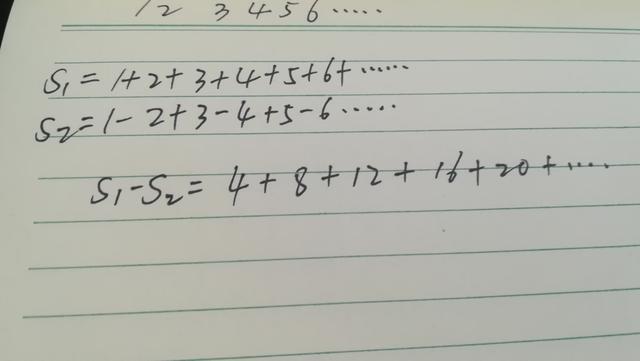 1 2 3 4 5 6 ·····
S₁ = 1+2+3+4+5+6+ ······
S₂=1-2+3-4+5-6·····
S₁-S₂= 4+8+12+16+20+····